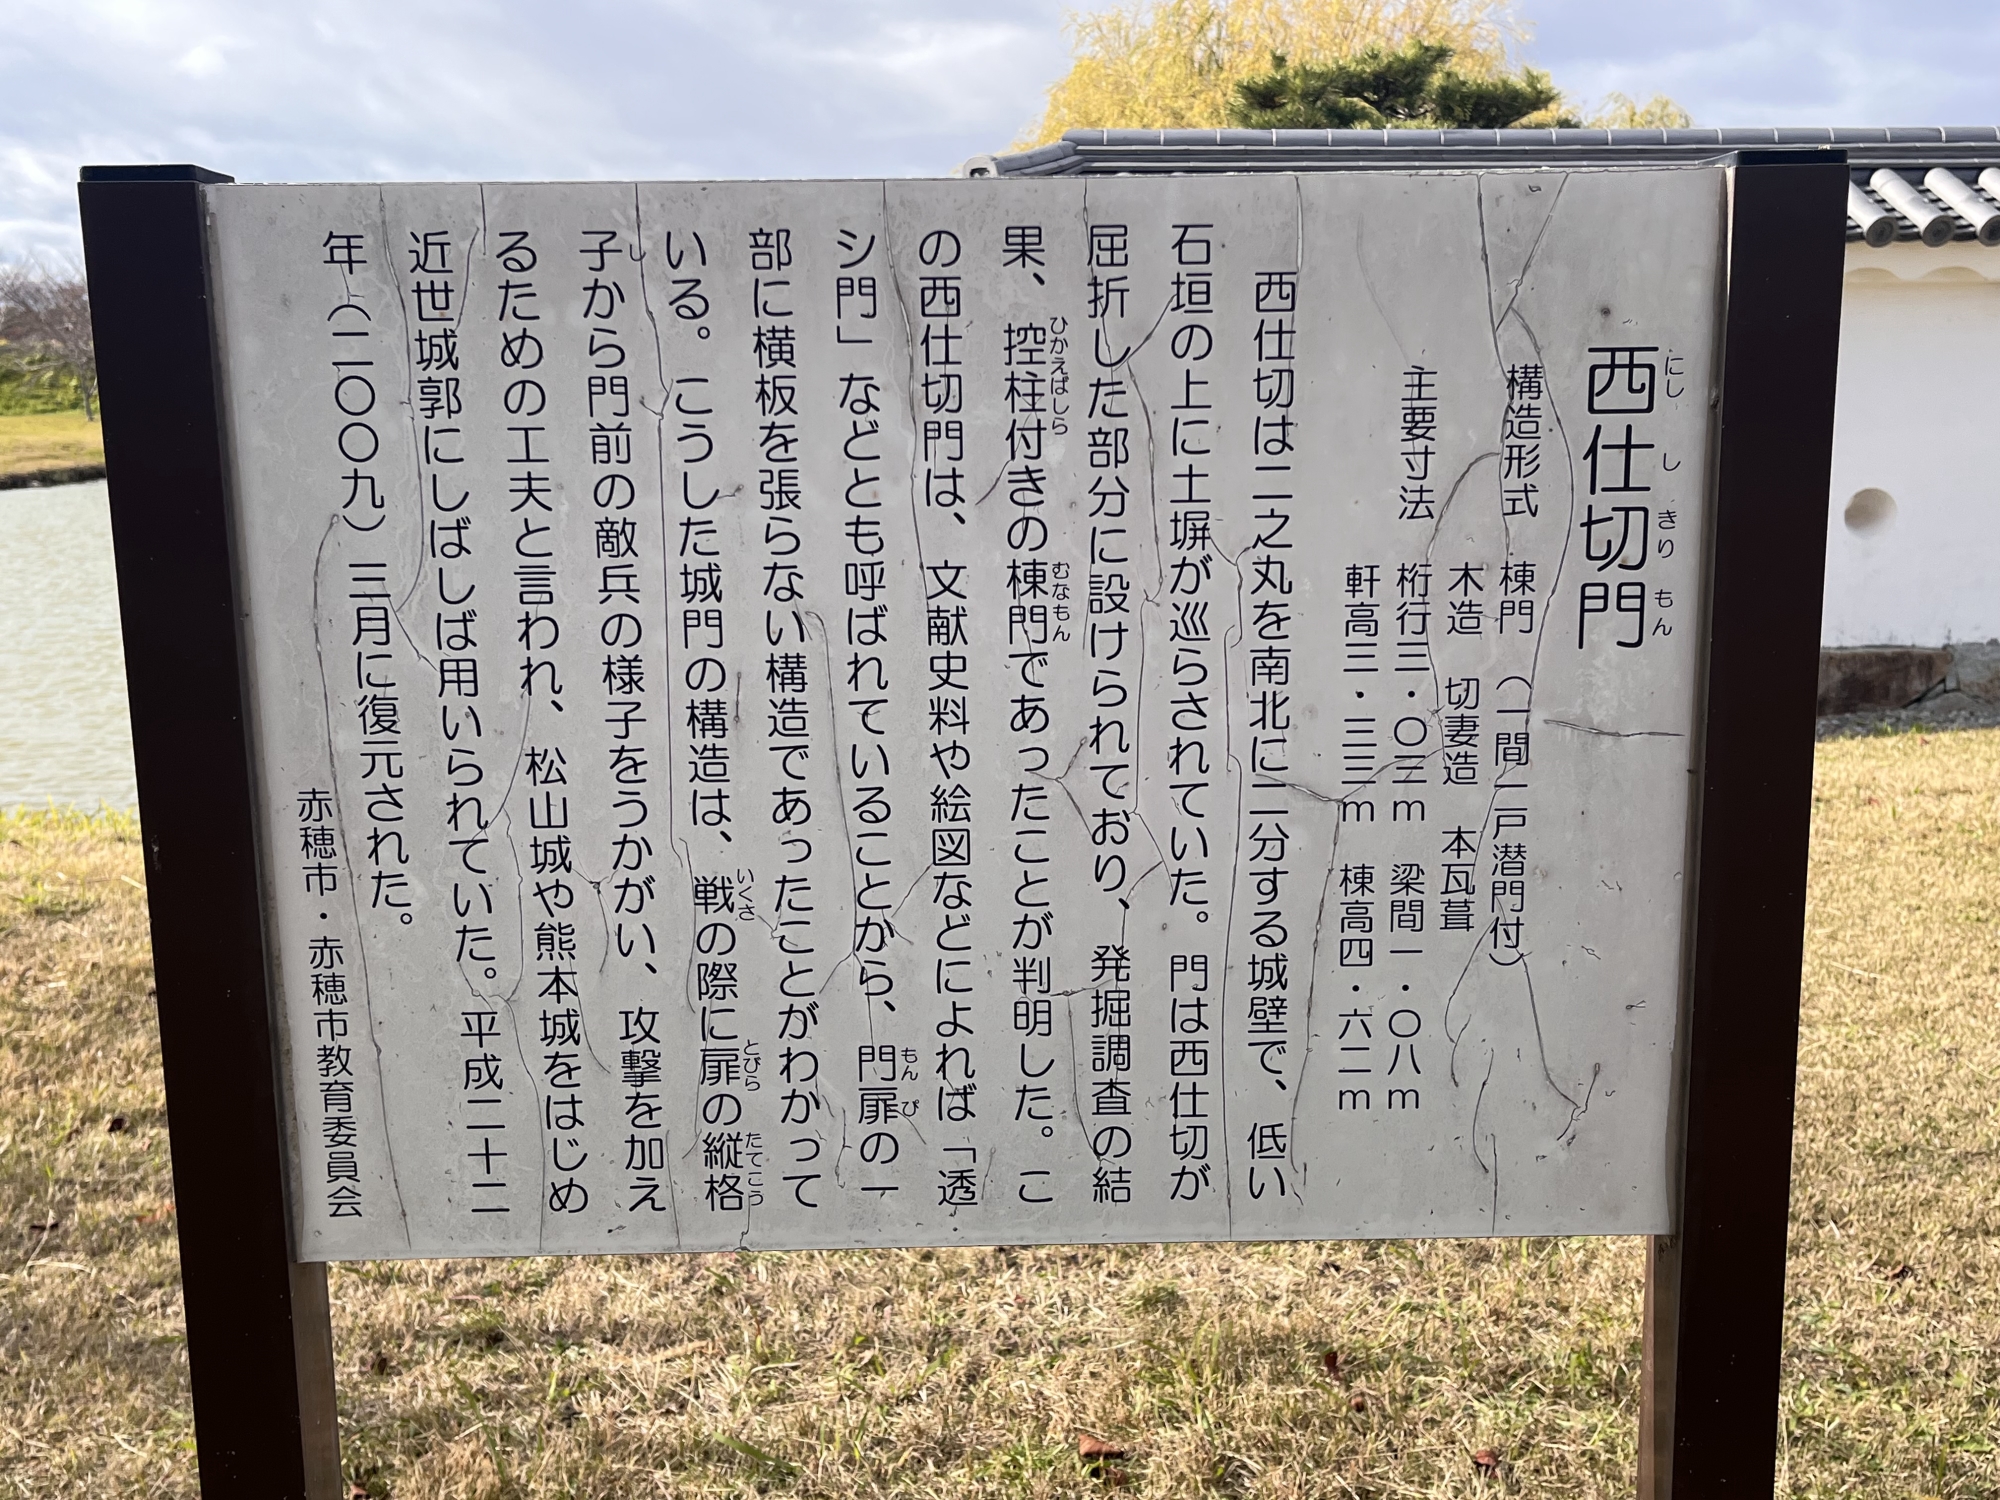 西仕切門
にし し きり もん
構造形式 棟門 (一間一戸潜門付)
木造 切妻造 本瓦葺
主要寸法 桁行三・〇三m 梁間一・〇八m
軒高三・三三m 棟高四・六二m
西仕切は二之丸を南北に二分する城壁で、低い
石垣の上に土塀が巡らされていた。門は西仕切が
屈折した部分に設けられており、発掘調査の結
果、控柱付きの棟門であったことが判明した。こ
ひかえばしら むなもん
の西仕切門は、文献史料や絵図などによれば「透
シ門」などとも呼ばれていることから、門扉の一
もん ぴ
部に横板を張らない構造であったことがわかって
いる。こうした城門の構造は、戦の際に扉の縦格
いくさ とびら たてこう
子から門前の敵兵の様子をうかがい、攻撃を加え
し
るための工夫と言われ、松山城や熊本城をはじめ
近世城郭にしばしば用いられていた。平成二十二
年(二〇〇九)三月に復元された。
赤穂市・赤穂市教育委員会